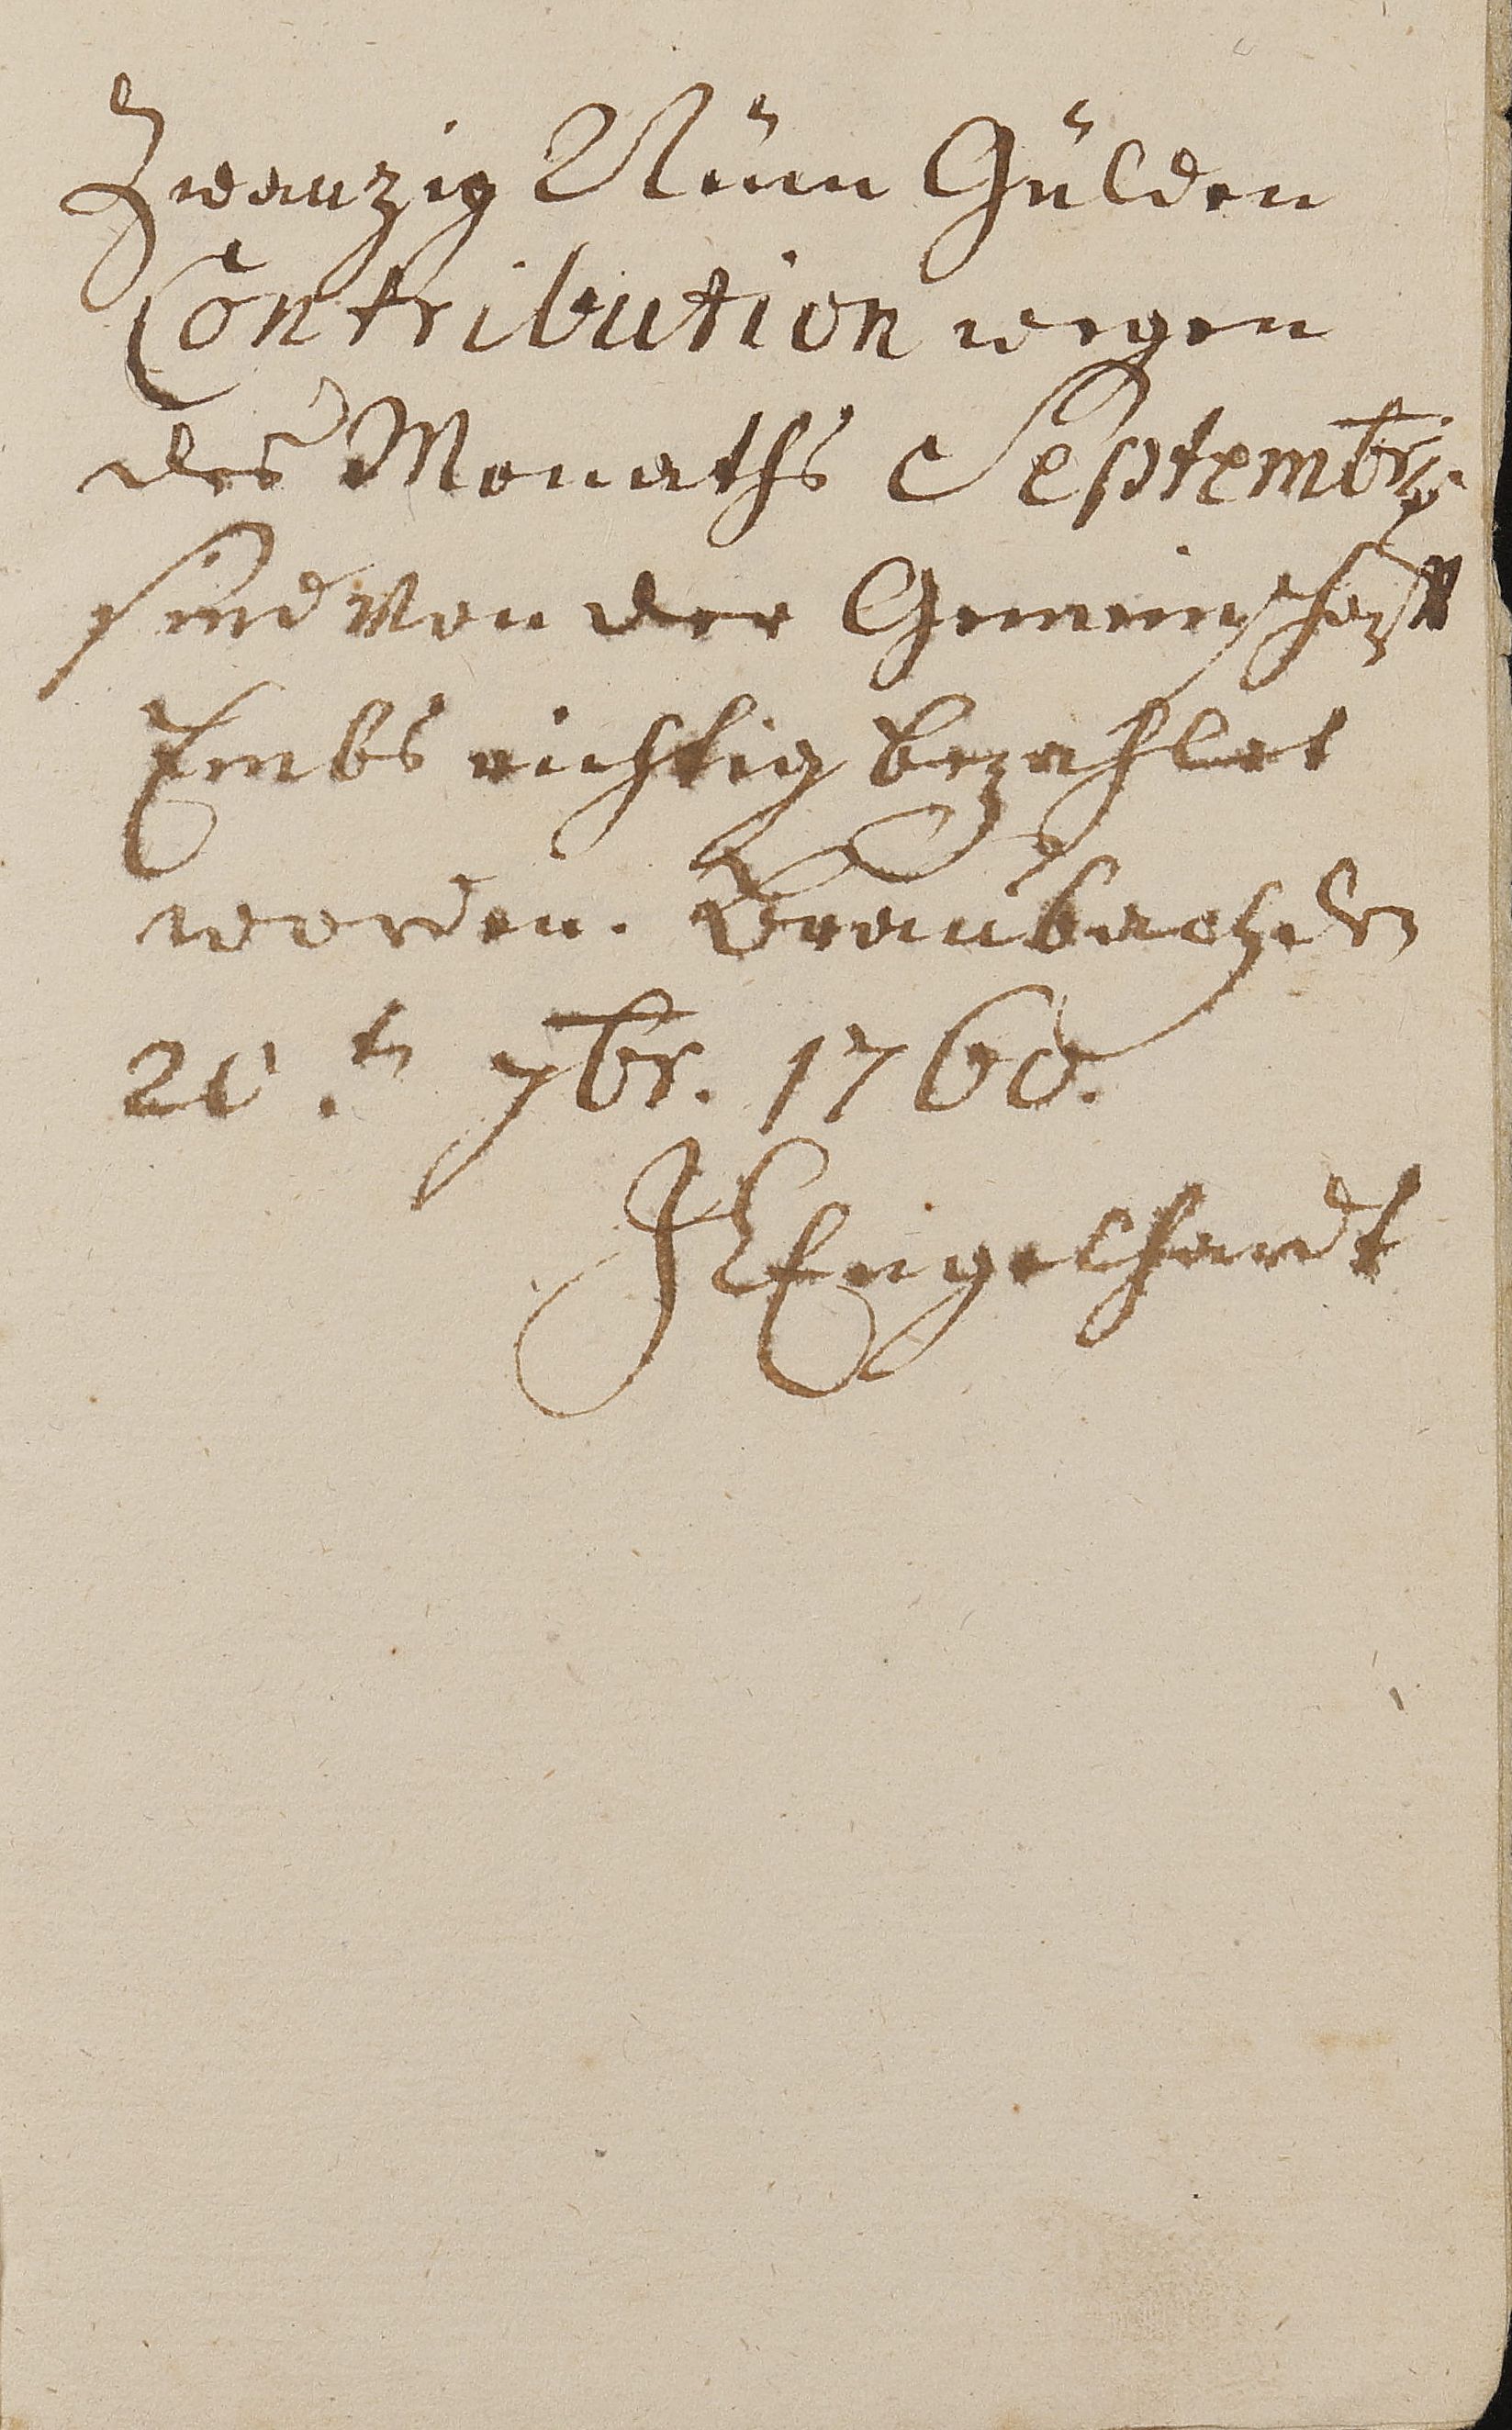 Zwanzig Nüun Gülden
Contribution wegen
des Monaths Septembr.
sind von der Gemeinschafft
Embs richtig bezahlet
worden. Braubach d.
20.tn 7br. 1760.
JEEngelhardt